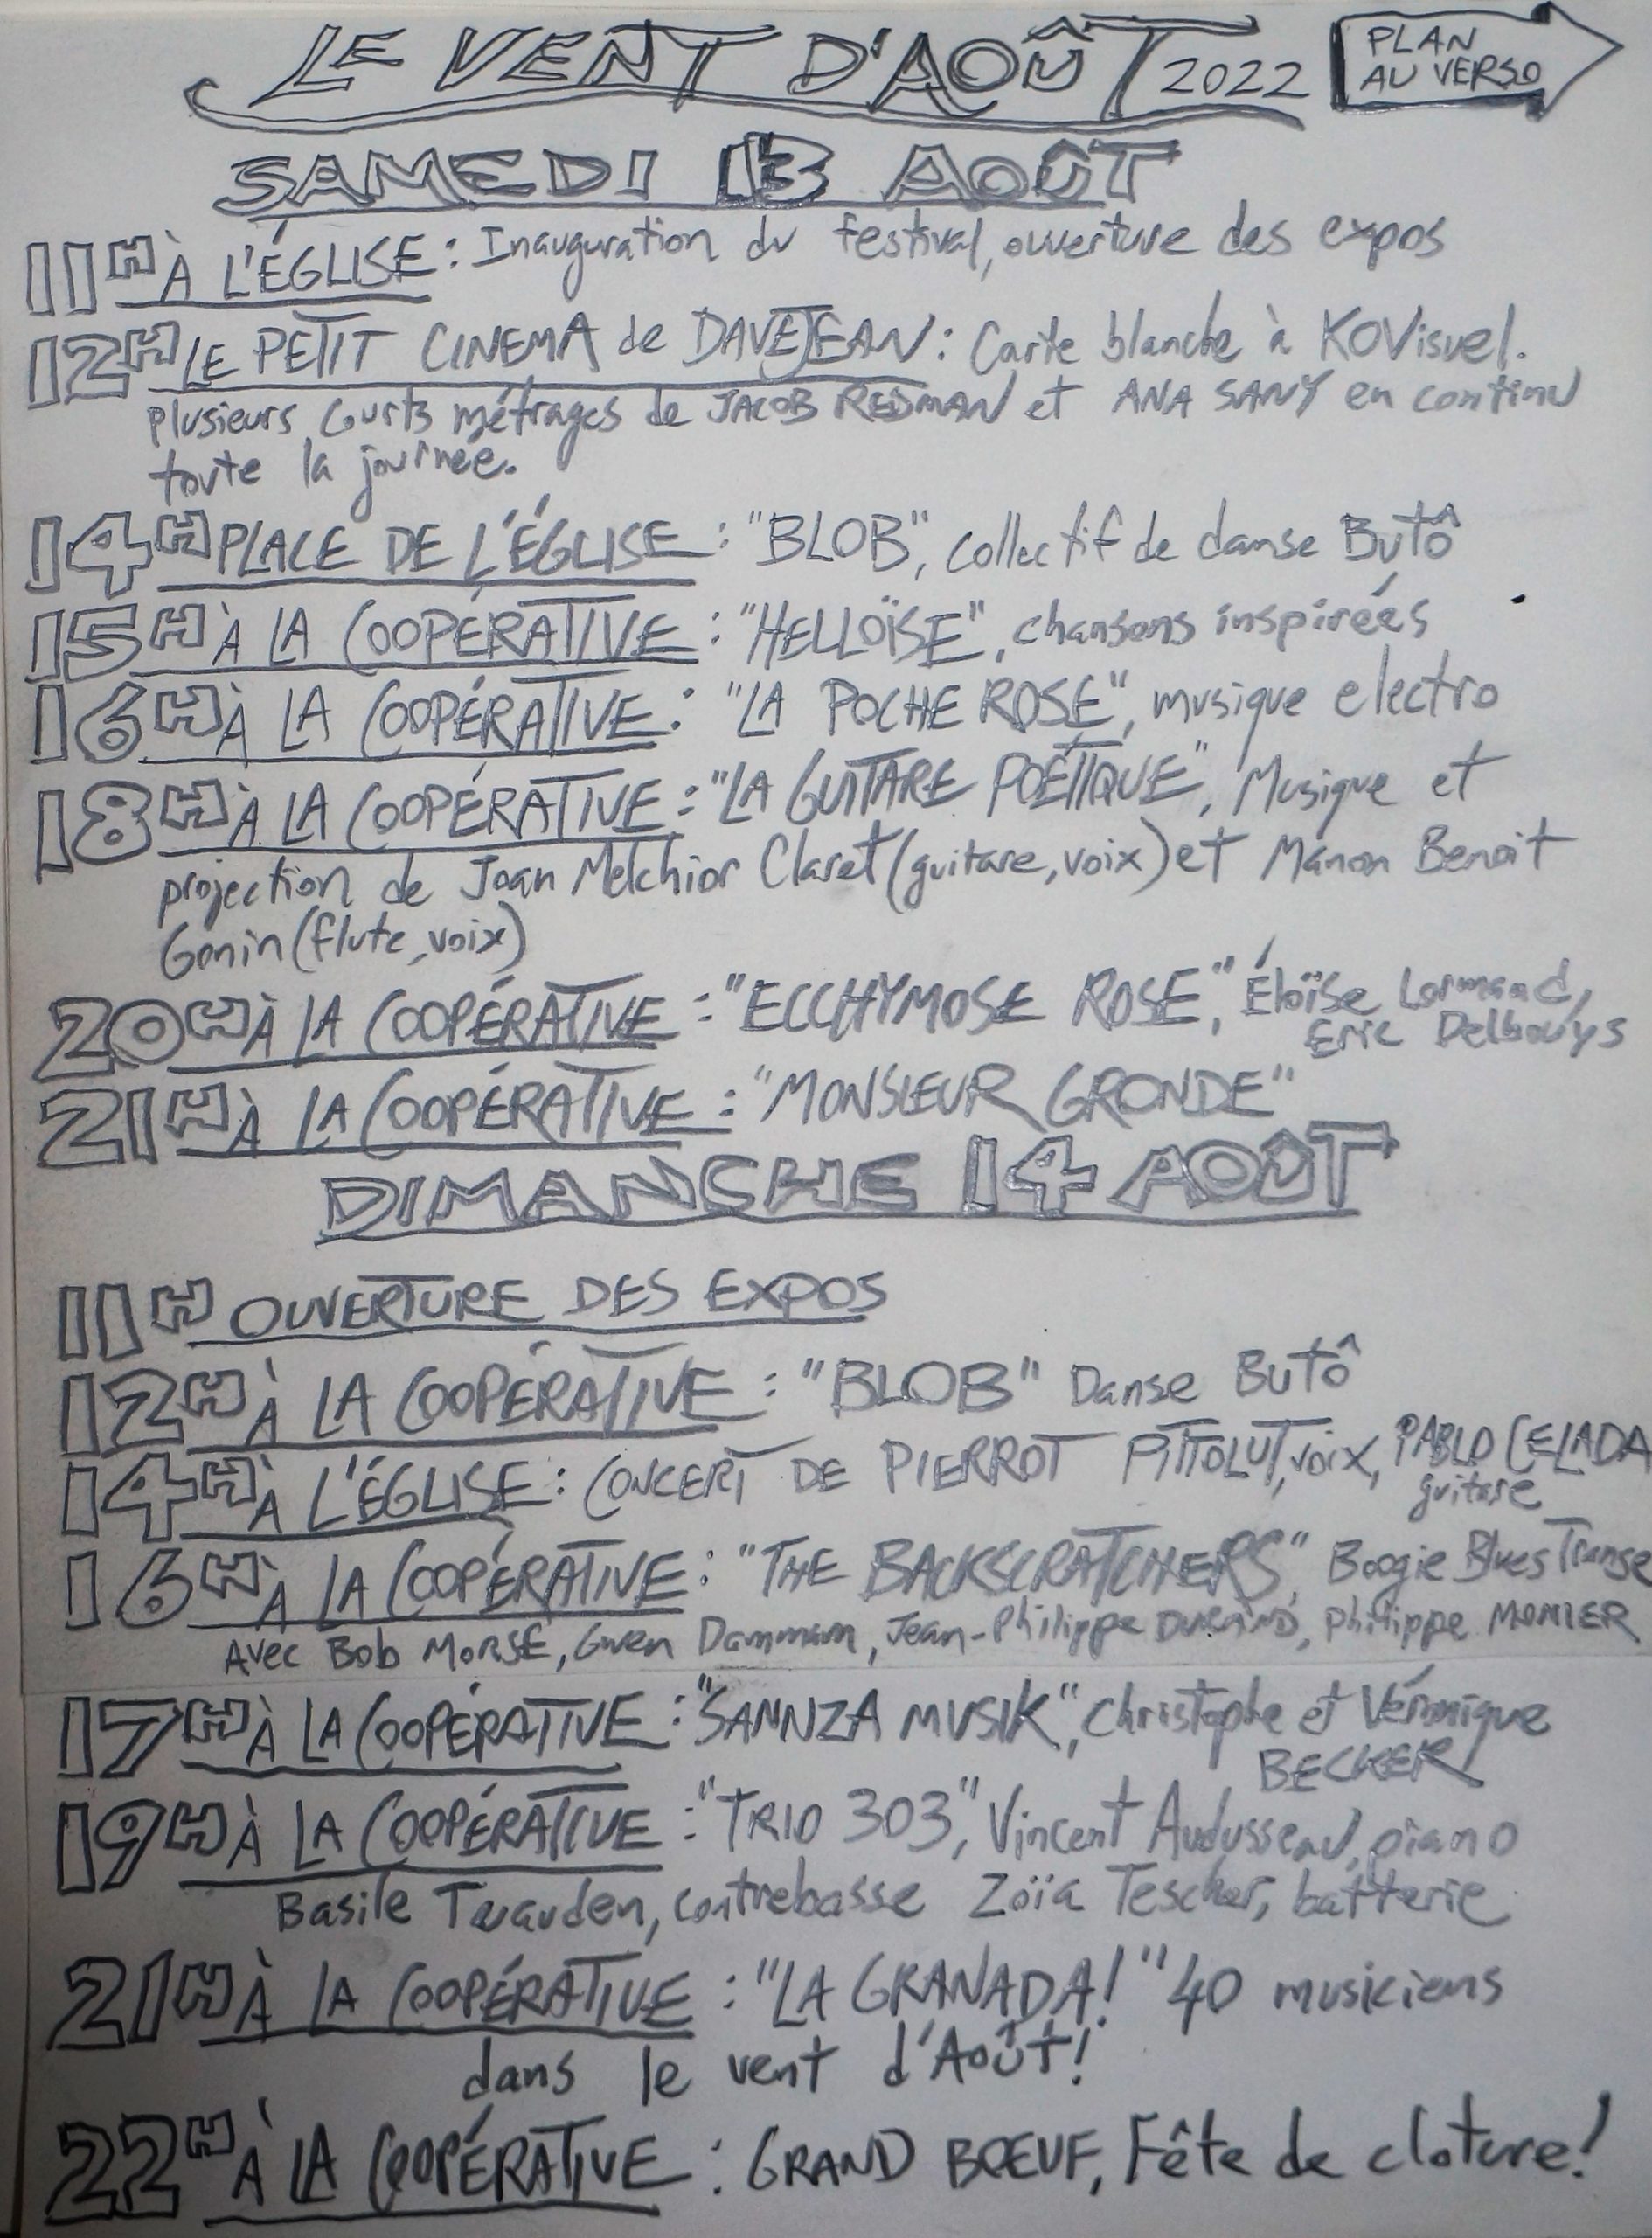 LE VENT D'AOÛT 2022
PLAN
AU VERSO
SAMEDI 13 AOÛT
11H À L'ÉGLISE : Inauguration du festival, ouverture des expos
12H LE PETIT CINEMA de DAVEJEAN : Carte blanche à KOVisuel.
plusieurs courts métrages de JACOB REDMAN et ANA SANY en continu
toute la journée.
14H PLACE DE L'ÉGLISE : "BLOB", collectif de danse Butô
15H À LA COOPÉRATIVE : "HELLOÏSE", chansons inspirées
16H À LA COOPÉRATIVE : "LA POCHE ROSE", musique electro
18H À LA COOPÉRATIVE : "LA GUITARE POÉTIQUE", Musique et
projection de Joan Melchior Claret (guitare, voix) et Manon Benoit
Gonin (flute, voix)
20H À LA COOPÉRATIVE : "ECCHYMOSE ROSE", Éloïse Lormand,
Eric Delbouys
21H À LA COOPÉRATIVE : "MONSIEUR GRONDE"
DIMANCHE 14 AOÛT
11H OUVERTURE DES EXPOS
12H À LA COOPÉRATIVE : "BLOB" Danse Butô
14H À L'ÉGLISE : CONCERT DE PIERROT PITTOLUT, voix, PABLO CELADA
guitare
16H À LA COOPÉRATIVE : "THE BACKSCRATCHERS", Boogie Blues Transe
Avec Bob MORSE, Gwen Dammam, Jean-Philippe DURAND, Philippe MONIER
17H À LA COOPÉRATIVE : "SANNZA MUSIK", Christophe et Véronique
BECKER
19H À LA COOPÉRATIVE : "TRIO 303", Vincent Audusseau, piano
Basile contrebasse Zoïa Tescher, batterie
21H À LA COOPÉRATIVE : "LA GRANADA!" 40 musiciens
dans le vent d'Août!
22H À LA COOPÉRATIVE : GRAND BŒUF, Fête de cloture!